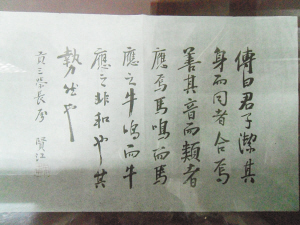 傳曰君子潔其
身而同者合焉
善其音而類者
應焉馬鳴而馬
應之牛鳴而牛
應之非知也其
勢然也
賢江